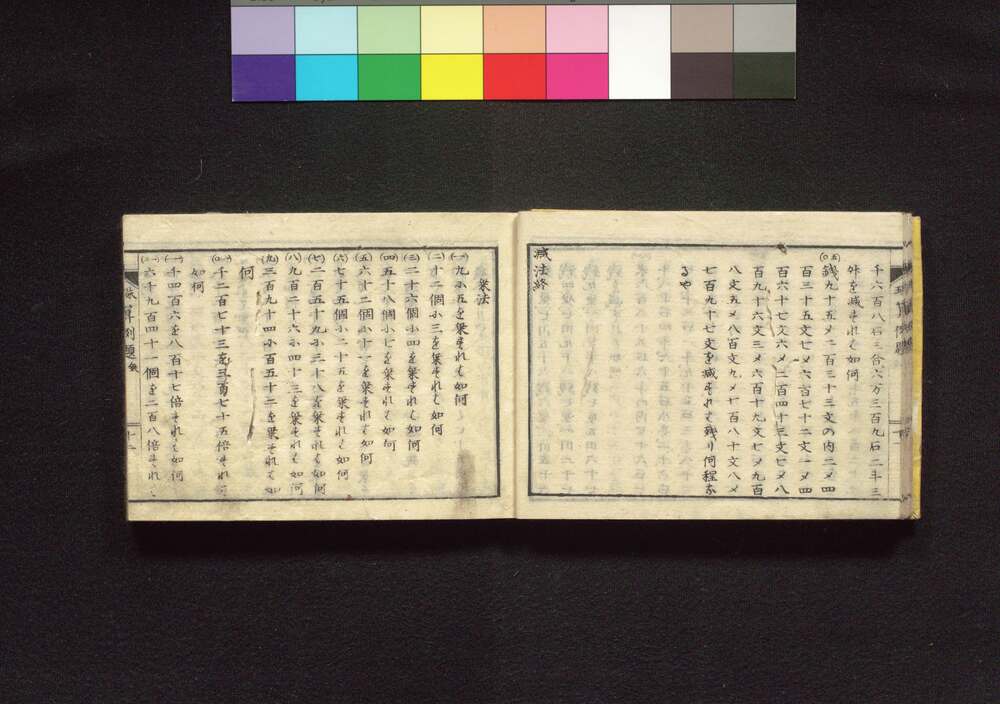 千六百八石三合六万三百九石二斗三
外を減すれは如何
(五〇)
錢九十五メ二百三十三文の内二メ四
百三十五文七メ六百七十二文一メ四
百六十七文六メ二百四十三文七メ八
百九十六文三メ六百十九文七メ九百
八文五メ八百文九メ十百八十文八メ
七百九十七文を減すれは残り何程な
るや
減法終
乗法
(一)九に五を乗すれは如何
(二)十二個に三を乗すれは如何
(三)二十六個に四を乗すれは如何
(四)五十八個に七を乗すれは如何
(五)六十二個に十一を乗すれは如何
(六)七十五個に二十五を乗すれは如何
(七)二百五十九に三十八を乗すれは如何
(八)九百二十六に四十三を乗すれは如何
(九)三百九十四に百五十二を乗すれは如
何
(一〇)千二百七十三を三百七十五倍すれは
如何
(一一)千四百六を八百十七倍すれは如何
(一二)六千九百四十一個を二百八倍すれは
筭例題
十二